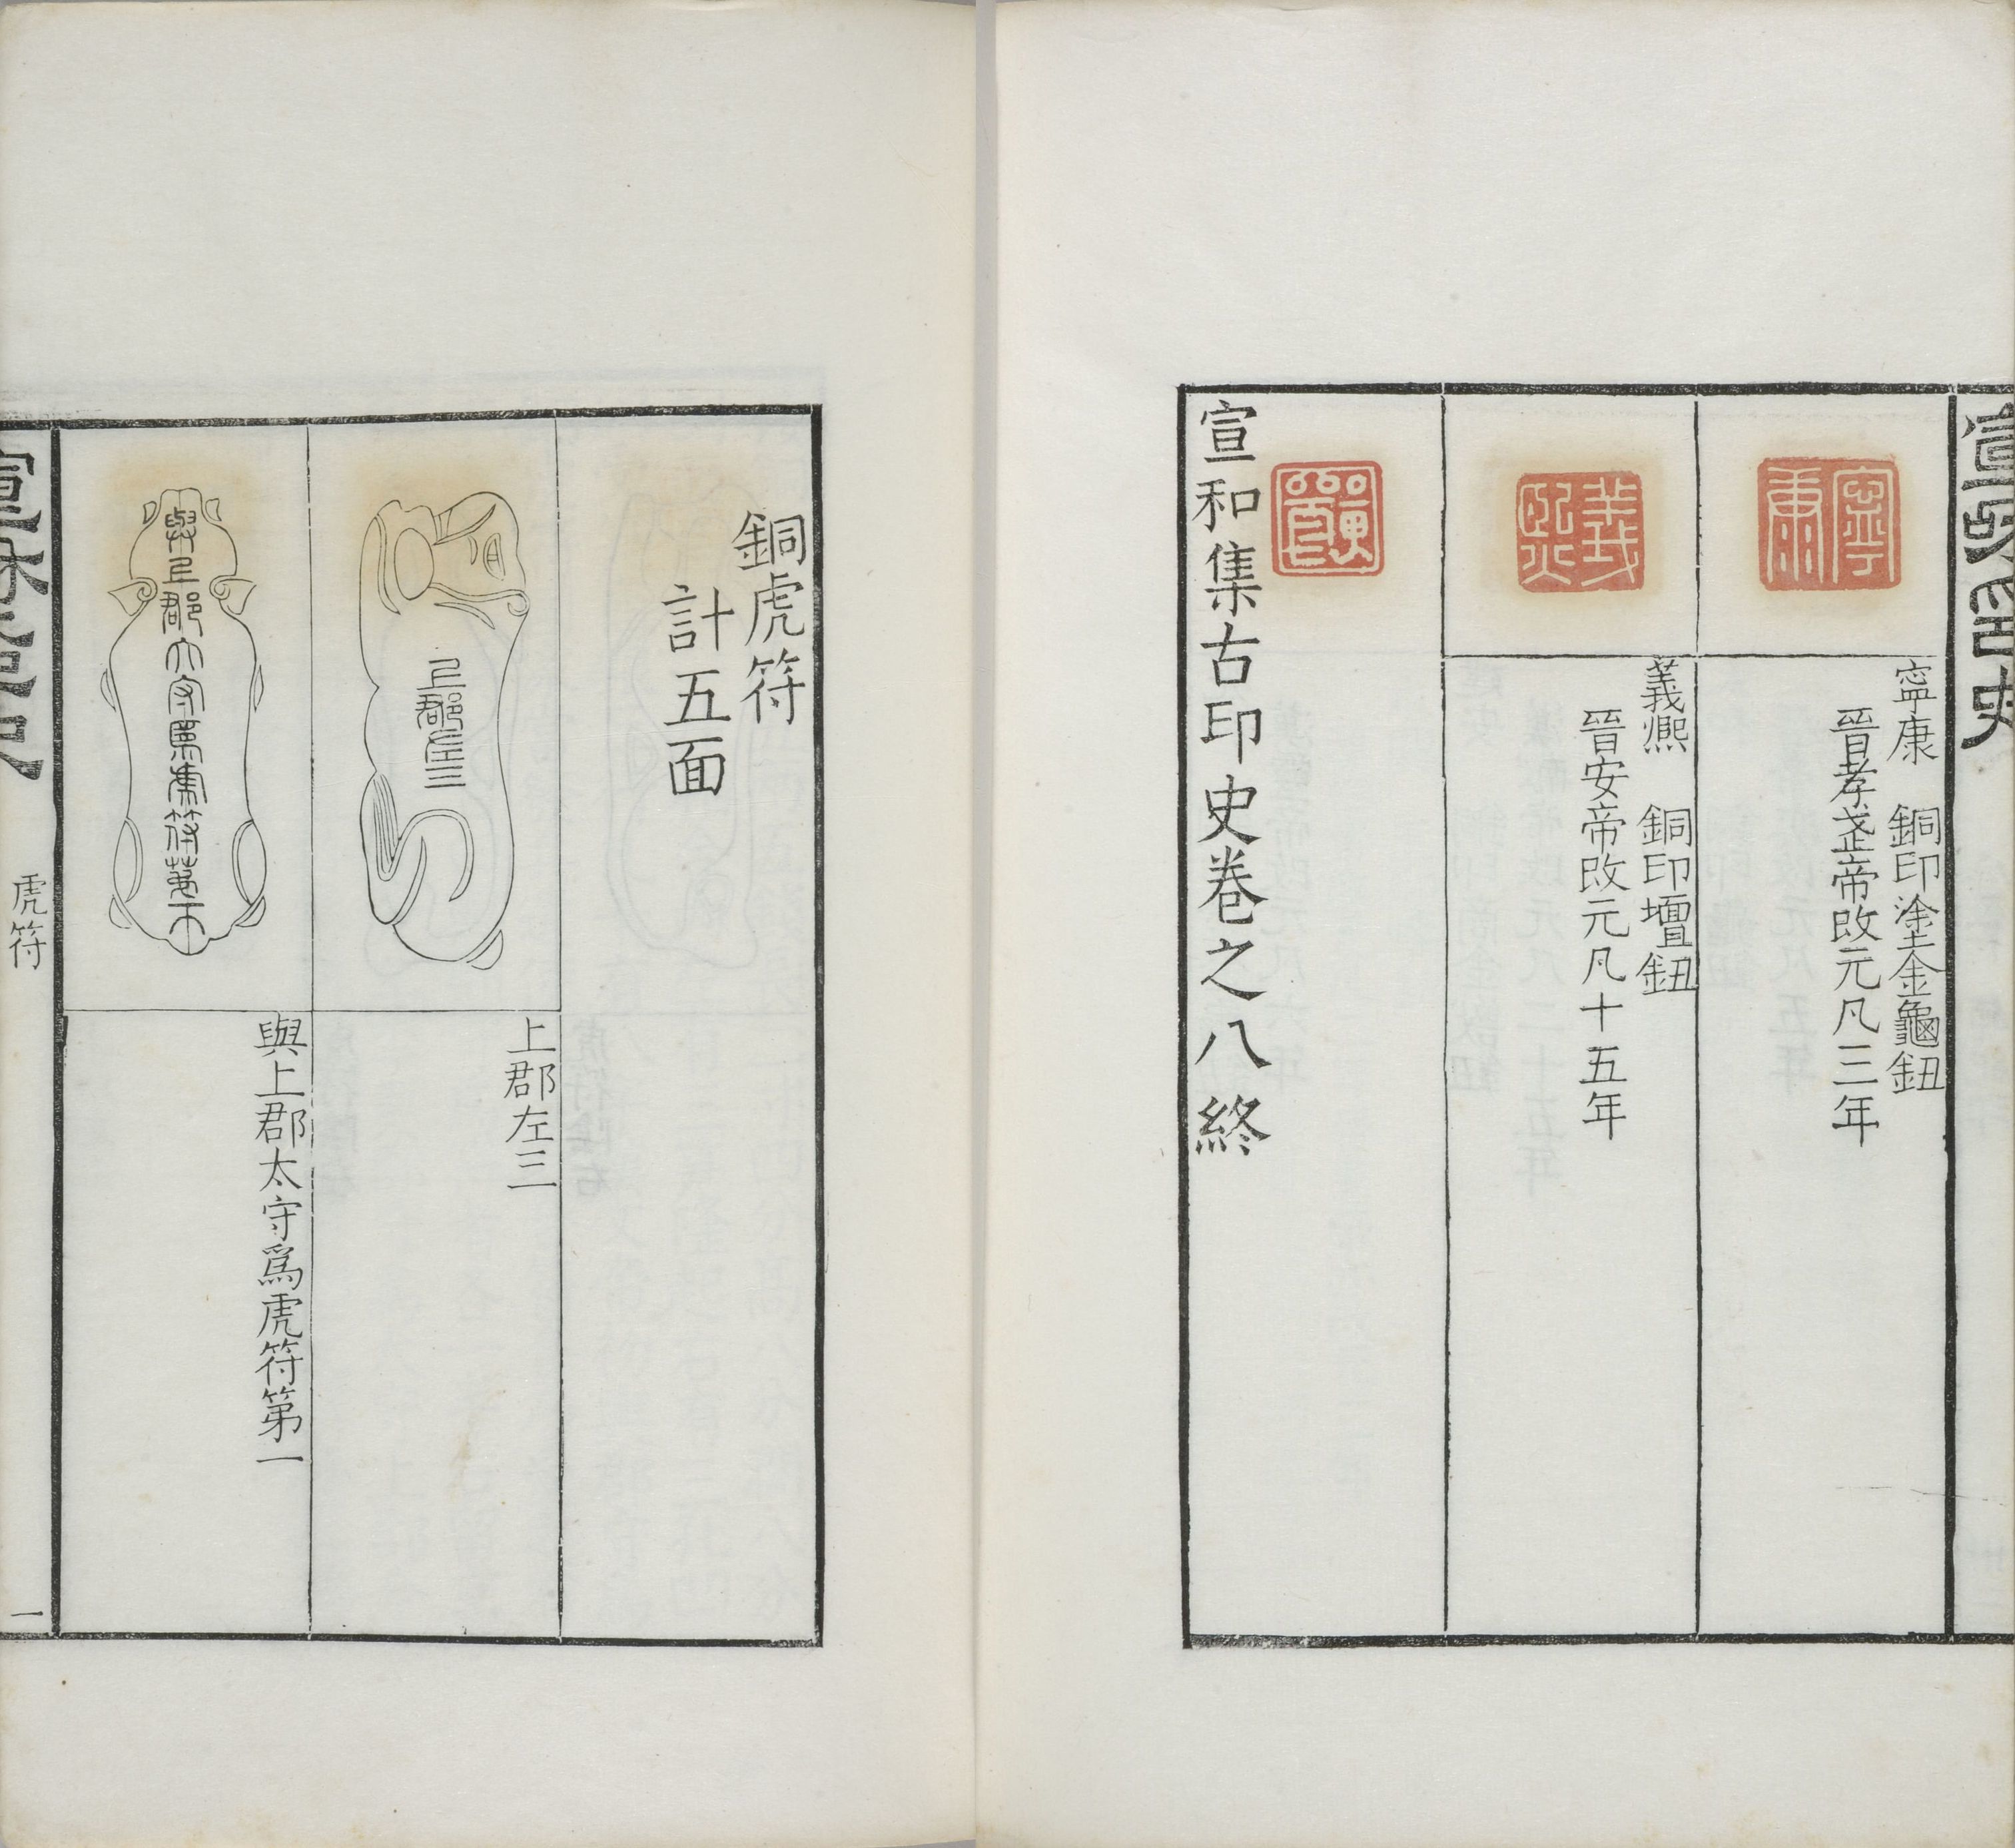 宣和印史
寧康
寧康　銅印塗金龜鈕
晉孝武帝改元凡三年
義熙
義熙　銅印壇鈕
晉安帝改元凡十五年
宣和集古印史卷之八終
銅虎符
計五面
上郡左三
上郡左三
與上郡太守爲虎符第一
與上郡太守爲虎符第一
虎符
一